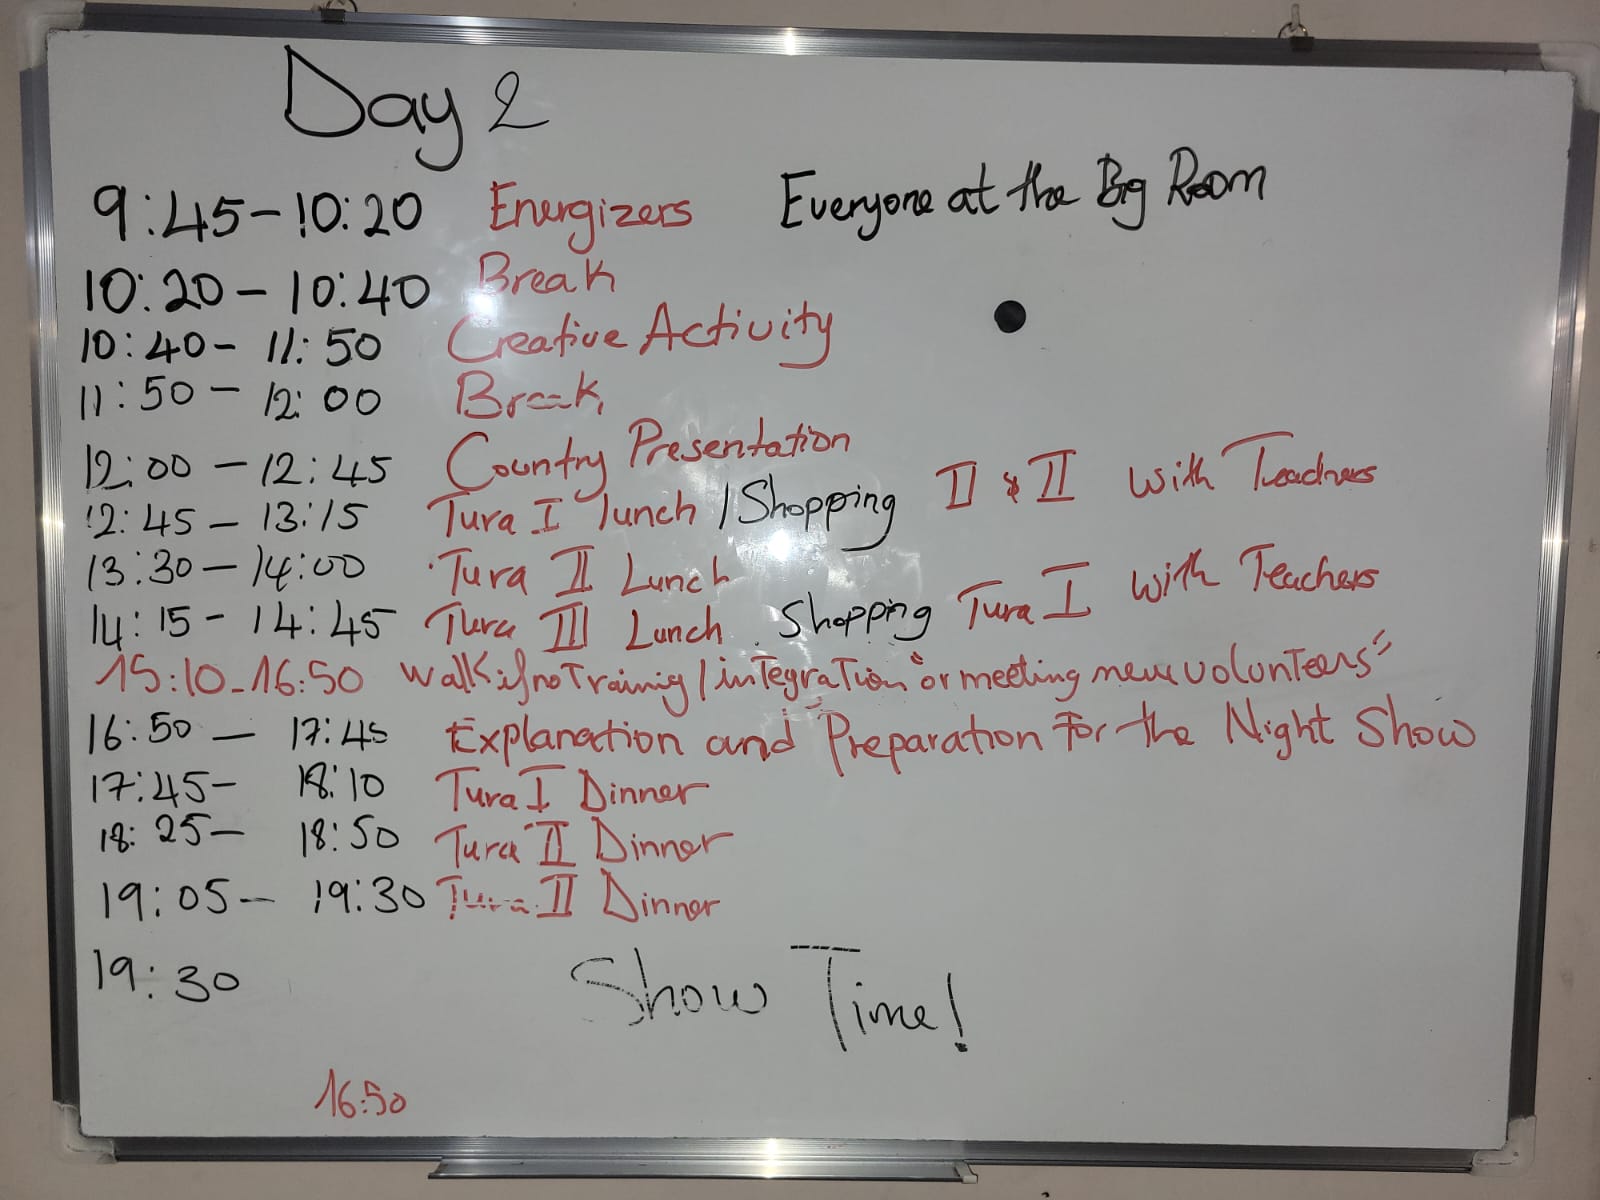 Day 2
9:45-10:20 Energizers Everyone at the Big Room
10:20-10:40 Break
10:40-11:50 Creative Activity
11:50-12:00 Break
12:00-12:45 Country Presentation
12:45-13:15 Tura I lunch / Shopping II & II with Teachers
13:30-14:00 Tura II Lunch
14:15-14:45 Tura III Lunch. Shopping Tura I with Teachers
15:10-16:50 Walk if no Training / integration "or meeting new volunteers"
16:50-17:45 Explanation and Preparation For the Night Show
17:45-18:10 Tura I Dinner
18:25-18:50 Tura II Dinner
19:05-19:30 Tura II Dinner
19:30 Show Time!
16:50